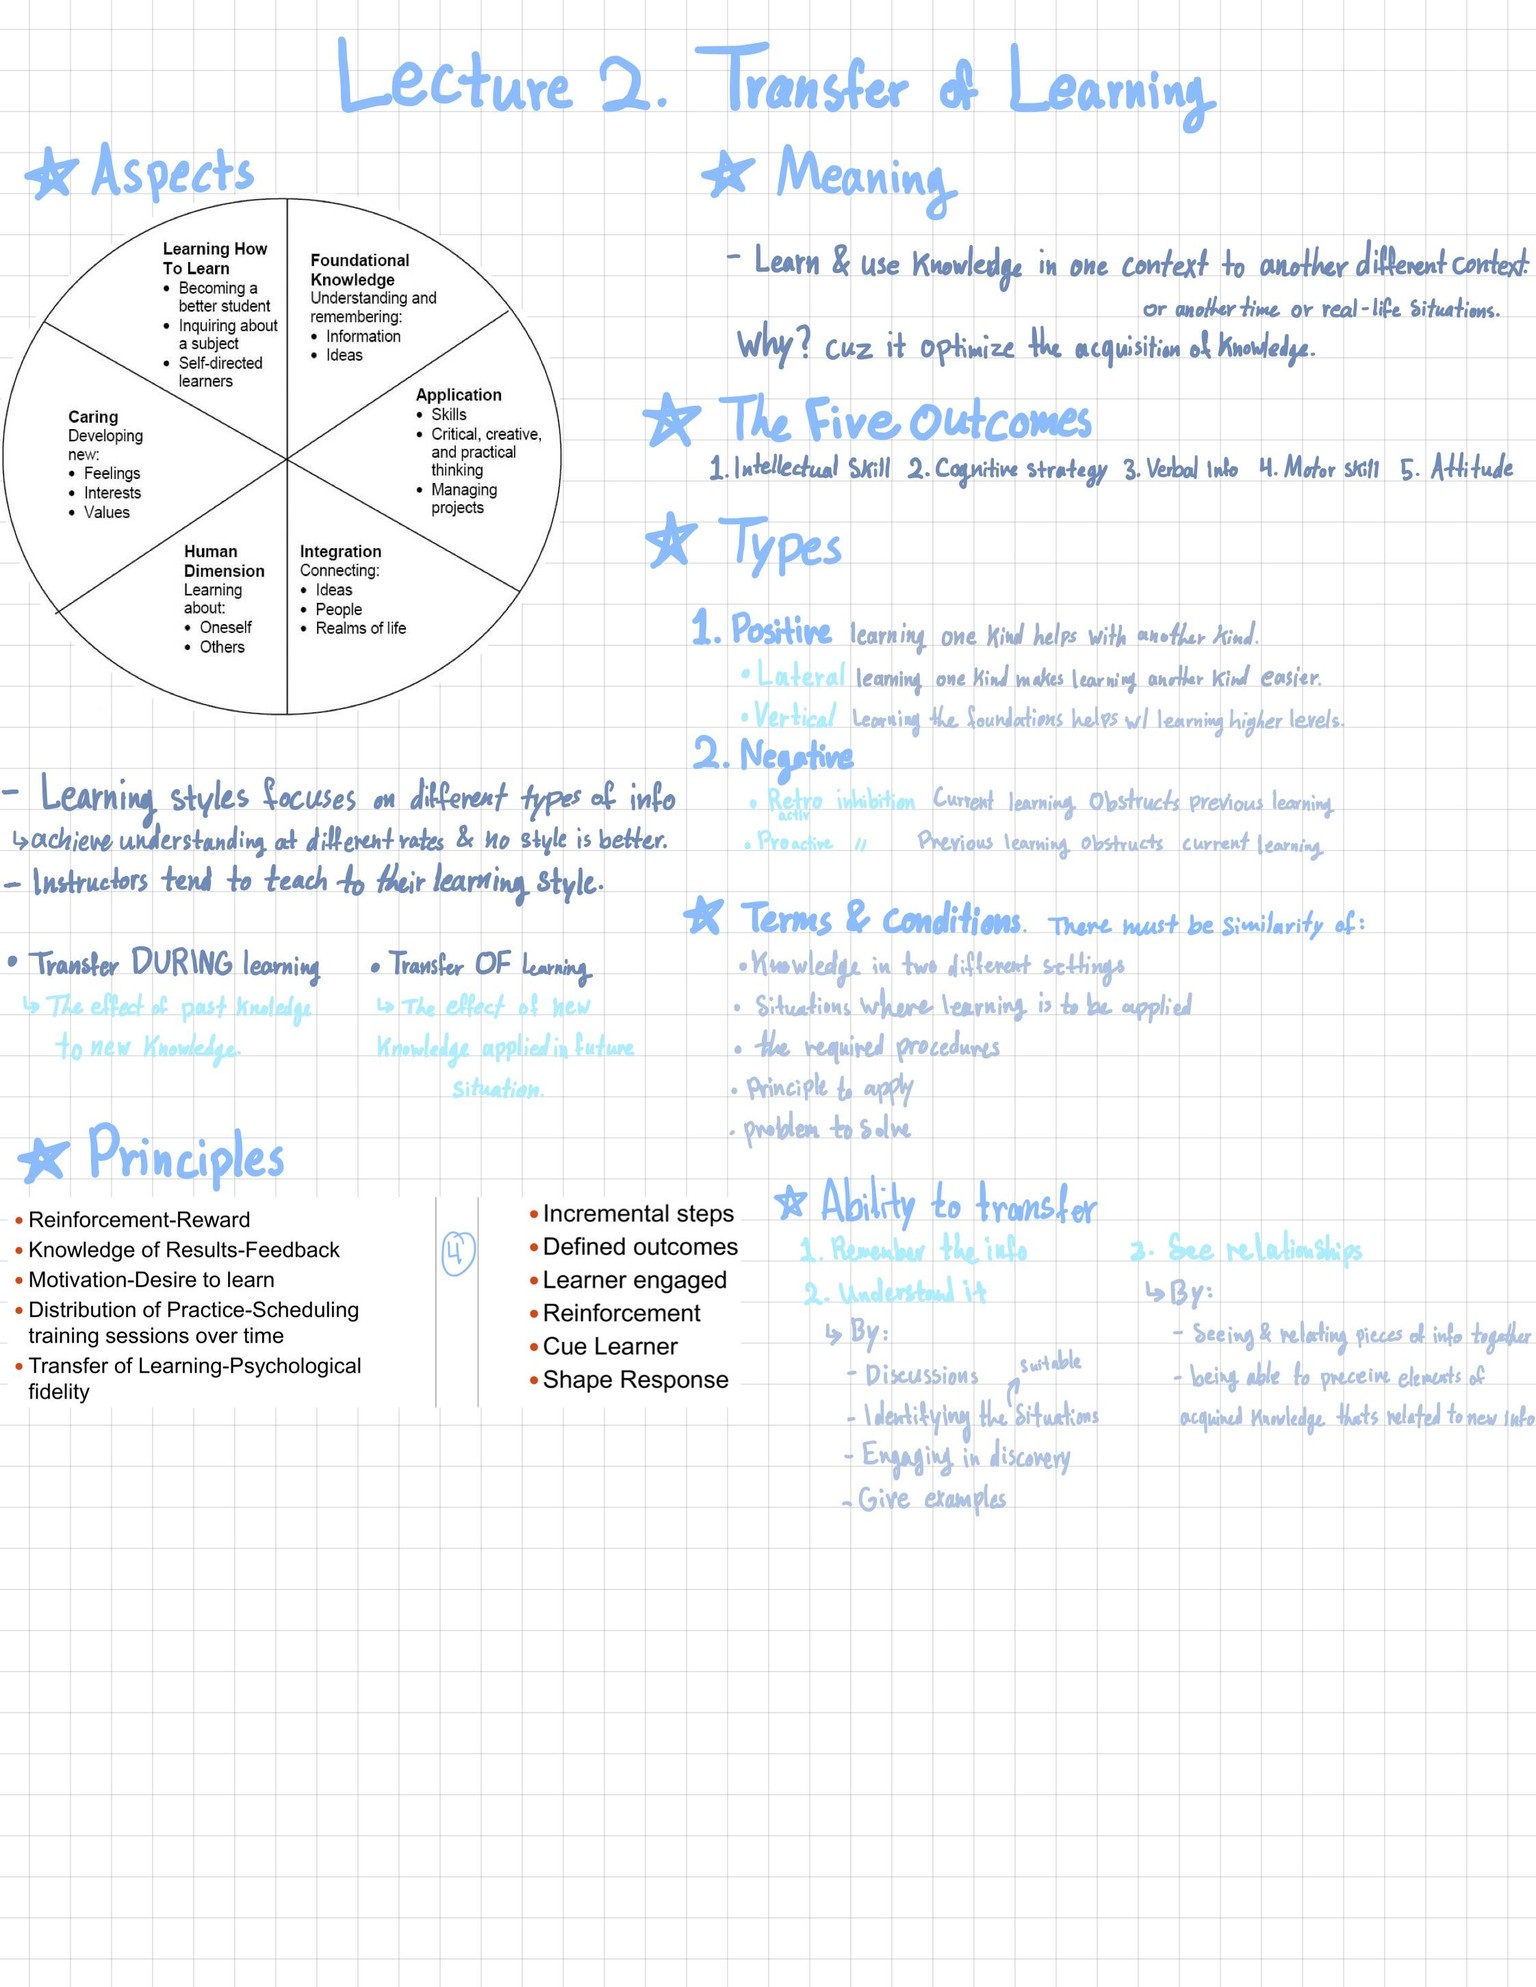 Lecture 2. Transfer of Learning
Aspects
Learning How
To Learn
• Becoming a
better student
• Inquiring about
a subject
• Self-directed
learners
Foundational
Knowledge
Understanding and
remembering:
• Information
• Ideas
Application
• Skills
• Critical, creative,
and practical
thinking
• Managing
projects
Integration
Connecting:
• Ideas
• People
• Realms of life
Human
Dimension
Learning
about:
• Oneself
• Others
Caring
Developing
new:
• Feelings
• Interests
• Values
- Learning styles focuses on different types of info
↳ achieve understanding at different rates & no style is better.
- Instructors tend to teach to their learning style.
• Transfer DURING learning
↳ The effect of past Knoledge
to new Knowledge.
• Transfer OF Learning
↳ The effect of new
Knowledge applied in future
situation.
Principles
• Reinforcement-Reward
• Knowledge of Results-Feedback
• Motivation-Desire to learn
• Distribution of Practice-Scheduling
training sessions over time
• Transfer of Learning-Psychological
fidelity
4
• Incremental steps
• Defined outcomes
• Learner engaged
• Reinforcement
• Cue Learner
• Shape Response
Meaning
- Learn & use Knowledge in one context to another different context.
or another time or real-life situations.
Why? cuz it optimize the acquisition of Knowledge.
The Five Outcomes
1. Intellectual Skill 2. Cognitive strategy 3. Verbal Info 4. Motor skill 5. Attitude
Types
1. Positive learning one Kind helps with another Kind.
• Lateral learning one Kind makes learning another Kind easier.
• Vertical Learning the foundations helps w/ learning higher levels.
2. Negative
• Retro inhibition Current learning Obstructs previous learning
activ
• Proactive 〃 Previous learning obstructs current learning
Terms & conditions. There must be Similarity of:
• Knowledge in two different settings
• Situations where learning is to be applied
• the required procedures
• Principle to apply
• problem to solve
Ability to transfer
1. Remember the info
2. Understand it
↳ By:
- Discussions
suitable
- Identifying the Situations
- Engaging in discovery
- Give examples
3. See relationships
↳ By:
- Seeing & relating pieces of info together
- being able to preceive elements of
acquired Knowledge thats related to new info